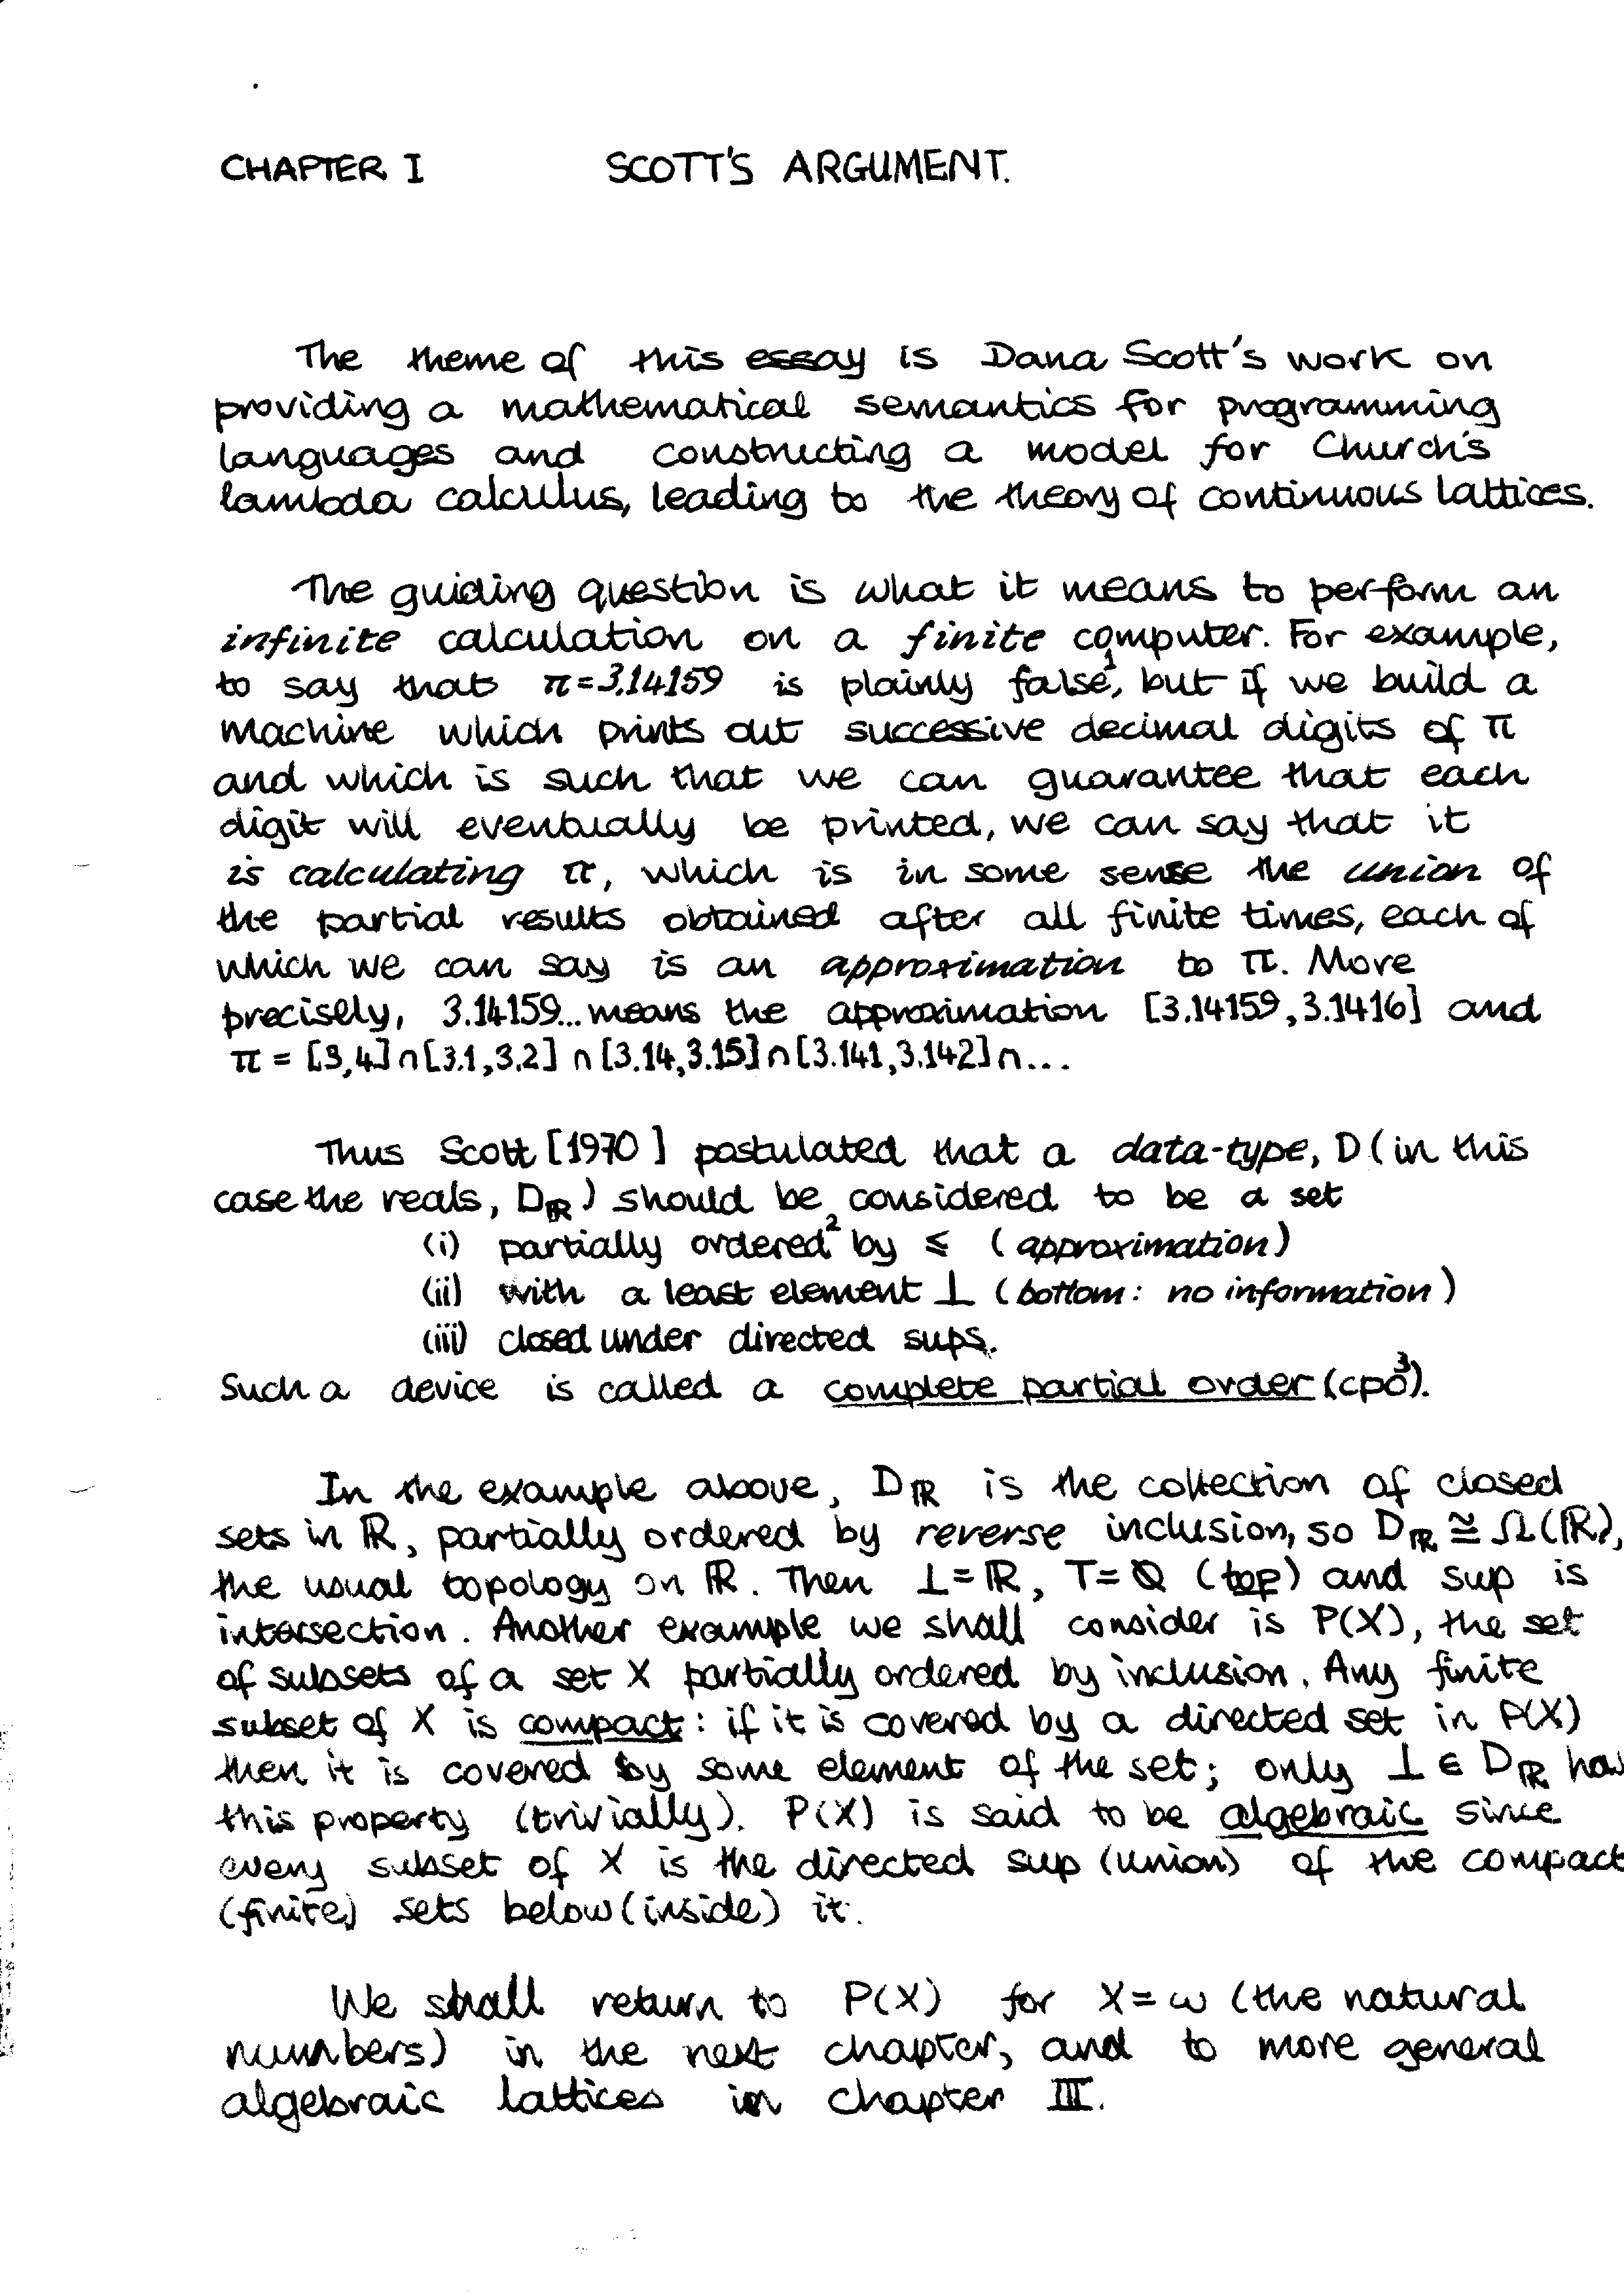 CHAPTER I SCOTT'S ARGUMENT.
The theme of this essay is Dana Scott's work on
providing a mathematical semantics for programming
languages and constructing a model for Church's
lambda calculus, leading to the theory of continuous lattices.
The guiding question is what it means to perform an
infinite calculation on a finite computer. For example,
to say that π=3.14159 is plainly false¹, but if we build a
machine which prints out successive decimal digits of π
and which is such that we can guarantee that each
digit will eventually be printed, we can say that it
is calculating π, which is in some sense the union of
the partial results obtained after all finite times, each of
which we can say is an approximation to π. More
precisely, 3.14159... means the approximation [3.14159,3.1416] and
π = [3,4]∩[3.1,3.2]∩[3.14,3.15]∩[3.141,3.142]∩...
Thus Scott [1970] postulated that a data-type, D (in this
case the reals, D_ℝ) should be considered to be a set
(i) partially ordered² by ≤ (approximation)
(ii) with a least element ⊥ (bottom: no information)
(iii) closed under directed sups.
Such a device is called a complete partial order (cpo³).
In the example above, D_ℝ is the collection of closed
sets in ℝ, partially ordered by reverse inclusion, so D_ℝ ≅ Ω(ℝ),
the usual topology on ℝ. Then ⊥=ℝ, T=∅ (top) and sup is
intersection. Another example we shall consider is P(X), the set
of subsets of a set X partially ordered by inclusion. Any finite
subset of X is compact: if it is covered by a directed set in P(X)
then it is covered by some element of the set; only ⊥ ∈ D_ℝ has
this property (trivially). P(X) is said to be algebraic since
every subset of X is the directed sup (union) of the compact
(finite) sets below (inside) it.
We shall return to P(X) for X=ω (the natural
numbers) in the next chapter, and to more general
algebraic lattices in chapter III.